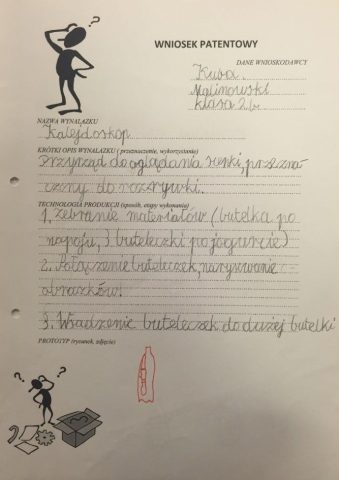 WNIOSEK PATENTOWY
DANE WNIOSKODAWCY
Kuba
Malinowski
klasa 2b
NAZWA WYNALAZKU
Kalejdoskop
KRÓTKI OPIS WYNALAZKU (przeznaczenie, wykorzystanie)
Przyrząd do oglądania scenki, przezna
czony do rozrywki.
TECHNOLOGIA PRODUKCJI (sposób, etapy wykonania)
1. Zebranie materiałów (butelka po
napoju, 3 buteleczki po jogurcie)
2. Połączenie buteleczek, narysowanie
obrazków.
3. Wsadzenie buteleczek do dużej butelki
PROTOTYP (rysunek, zdjęcie)